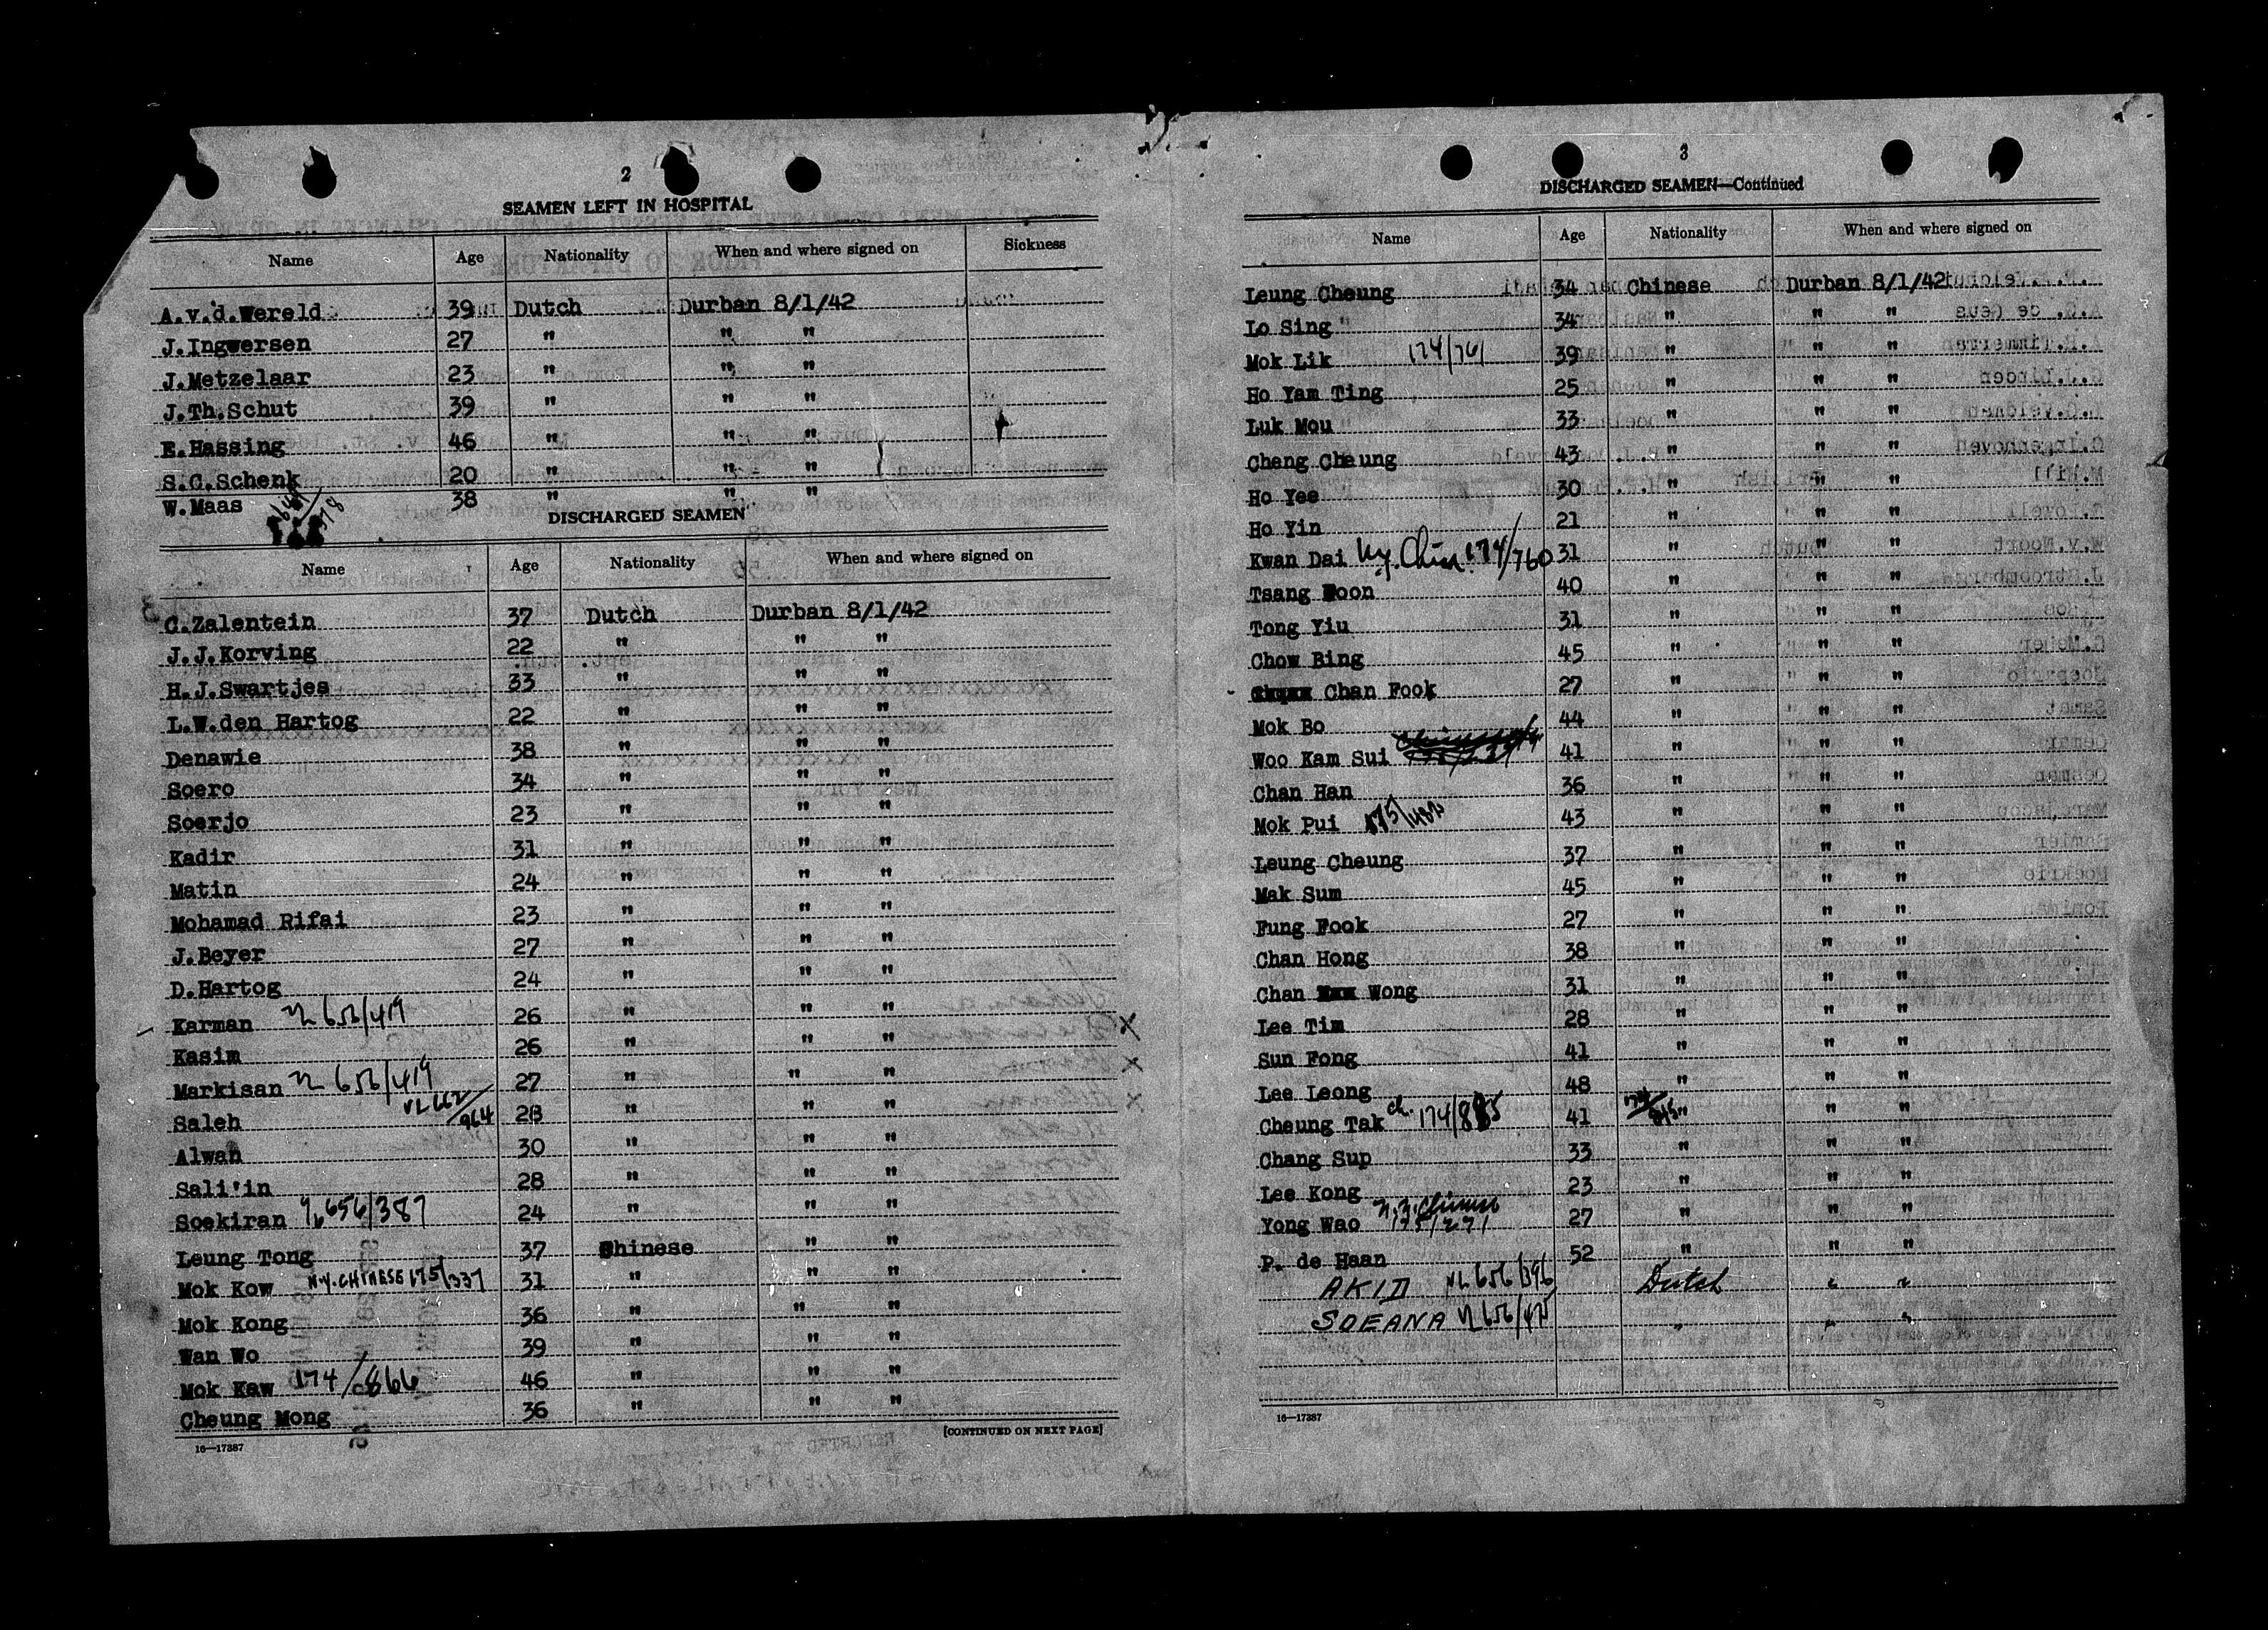 2
SEAMEN LEFT IN HOSPITAL
Name Age Nationality When and where signed on Sickness
A.v.d.Wereld 39 Dutch Durban 8/1/42
J.Ingwersen 27 " " "
J.Metzelaar 23 " " "
J.Th.Schut 39 " " "
E.Hassing 46 " " "
S.C.Schenk 20 " " "
W.Maas 38 " " "
DISCHARGED SEAMEN
Name Age Nationality When and where signed on
C.Zalentein 37 Dutch Durban 8/1/42
J.J.Korving 22 " " "
H.J.Swartjes 33 " " "
L.W.den Hartog 22 " " "
Denawie 38 " " "
Soero 34 " " "
Soerjo 23 " " "
Kadir 31 " " "
Matin 24 " " "
Mohamad Rifai 23 " " "
J.Beyer 27 " " "
D.Hartog 24 " " "
Karman 656/419 26 " " "
Kasim 26 " " "
Markisan 656/419 27 " " "
Saleh 662/964 28 " " "
Alwan 30 " " "
Sali'in 28 " " "
Soekiran 656/387 24 " " "
Leung Tong 37 Chinese " "
Mok Kow N.Y. CHINESE 175/337 31 " " "
Mok Kong 36 " " "
Wan Wo 39 " " "
Mok Kaw 174/866 46 " " "
Cheung Mong 36 " " "
16—17387 [CONTINUED ON NEXT PAGE]
3
DISCHARGED SEAMEN—Continued
Name Age Nationality When and where signed on
Leung Cheung 34 Chinese Durban 8/1/42
Lo Sing " 34 " " "
Mok Lik 174/761 39 " " "
Ho Yam Ting 25 " " "
Luk Mou 33 " " "
Cheng Cheung 43 " " "
Ho Yee 30 " " "
Ho Yin 21 " " "
Kwan Dai N.y. Chin. 174/760 31 " " "
Tsang Woon 40 " " "
Tong Yiu 31 " " "
Chow Bing 45 " " "
Chan Fook 27 " " "
Mok Bo 44 " " "
Woo Kam Sui 41 " " "
Chan Han 36 " " "
Mok Pui 43 " " "
Leung Cheung 37 " " "
Mak Sum 45 " " "
Fung Fook 27 " " "
Chan Hong 38 " " "
Chan Wong 31 " " "
Lee Tim 28 " " "
Sun Fong 41 " " "
Lee Leong 48 " " "
Cheung Tak ch. 174/885 41 " " "
Chang Sup 33 " " "
Lee Kong 23 " " "
Yong Wao n.y. Chinese 175/271 27 " " "
P. de Haan 52 " " "
AKID NL 656/396 Dutch " "
SOEANA " " "
16—17387